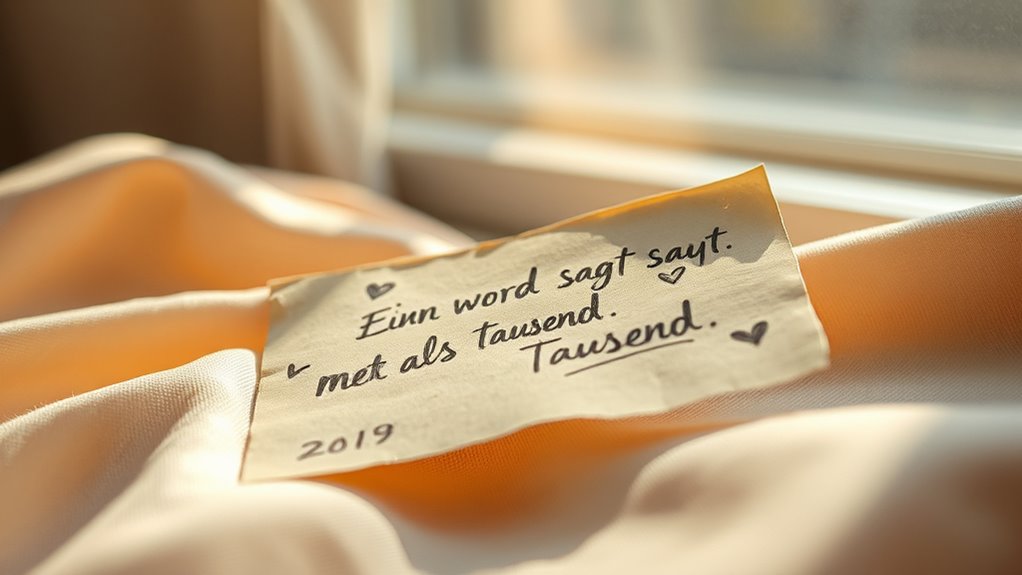 Einn word sagt sayt.
met als tausend.
Tausend.
2019